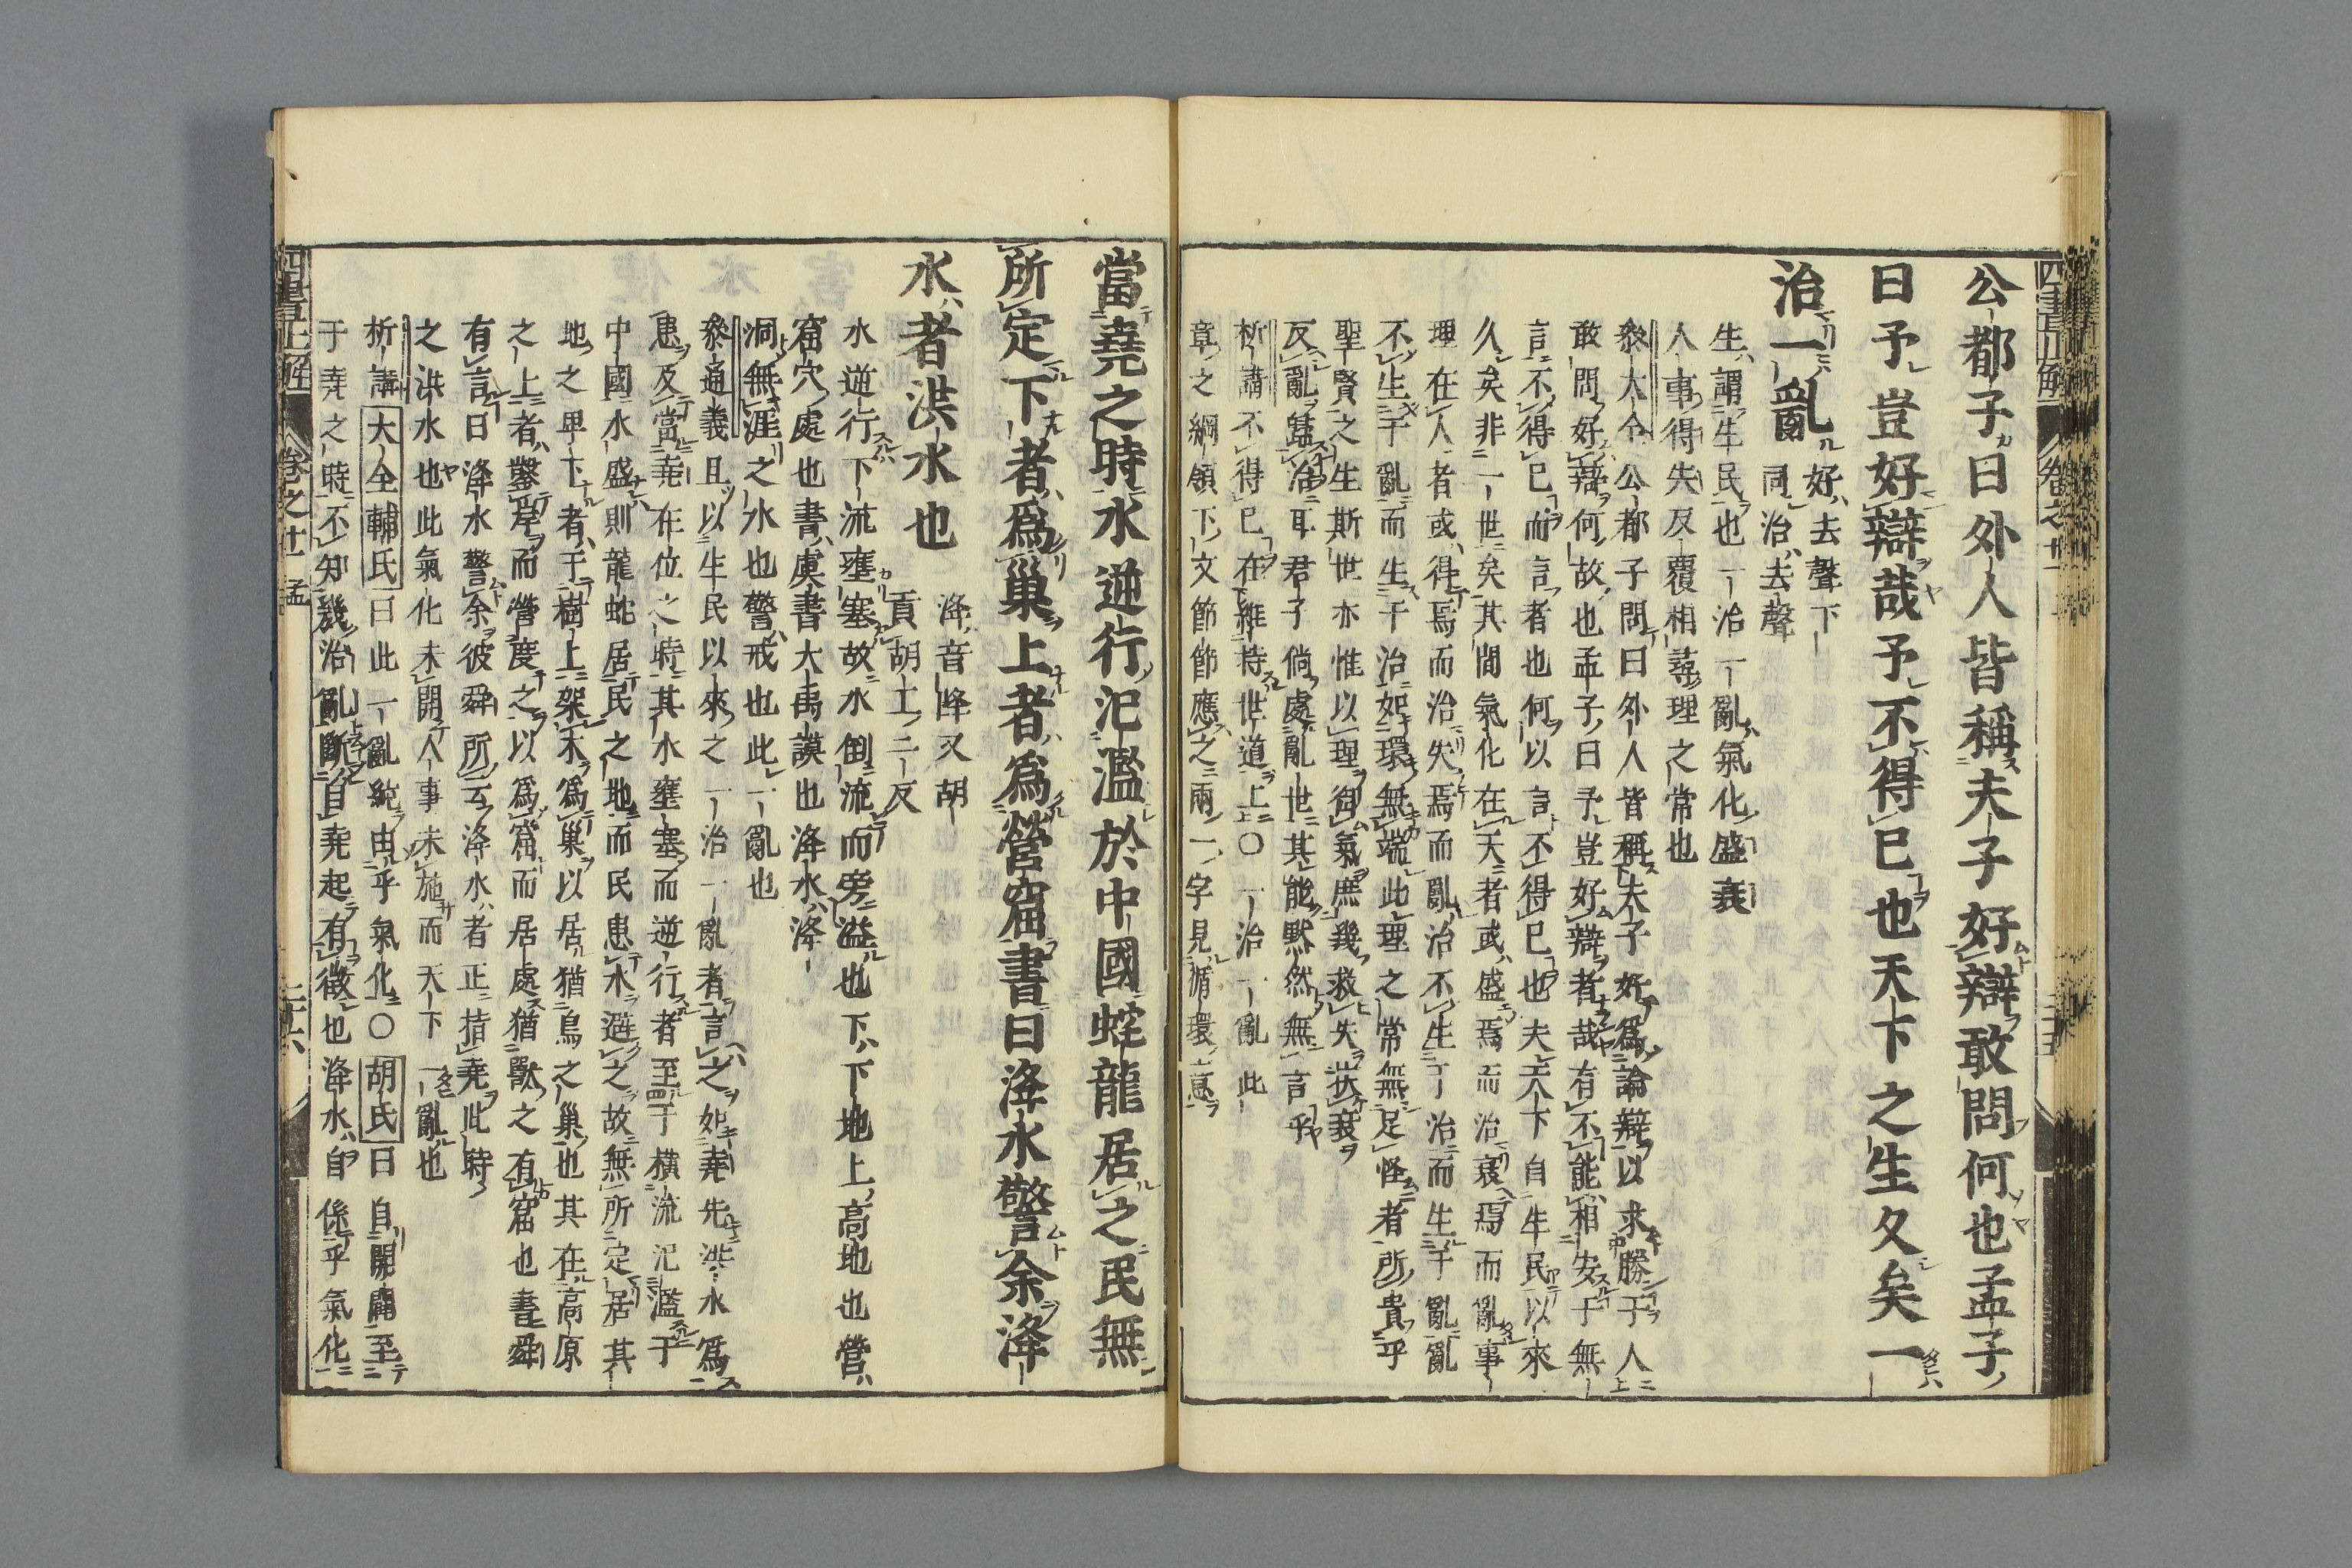 公都子曰外人皆稱夫子好辯敢問何也孟子
曰予豈好辯哉予不得已也天下之生久矣一
治一亂
好去聲下
同治去聲
生謂生民也一治一亂氣化盛衰
人事得失反覆相尋理之常也
叅大全公都子問曰外人皆稱夫子好爲論辯以求勝于人
敢問好辯何故也孟子曰予豈好辯者哉有不能相安于無
言不得已而言者也何以言不得已也夫天下自生民以來
久矣非一世矣其間氣化在天者或盛焉而治衰焉而亂事
理在人者或得焉而治失焉而亂治不生于治而生于亂亂
不生于亂而生于治如環無端此理之常無足怪者所貴乎
聖賢之生斯世亦惟以理御氣庶幾救失扶衰
反亂歸治耳君子倘處亂世其能默然無言乎
析講不得已在維持世道上〇一治一亂此
章之綱領下文節節應之兩一字見循環意
當堯之時水逆行氾濫於中國蛇龍居之民無
所定下者爲巢上者爲營窟書曰洚水警余洚
水者洪水也
洚音降又胡
貢胡工二反
水逆行下流壅塞故水倒流而旁溢也下下地上高地也營
窟穴處也書虞書大禹謨也洚水洚
洞無涯之水也警戒也此一亂也
叅通義且以生民以來之一治一亂者言之如堯先洪水爲
患及當堯在位之時其水壅塞而逆行者至于橫流氾濫于
中國水盛則龍蛇居民之地而民患水避之故無所定居其
地之卑下者于樹上架木爲巢以居猶鳥之巢也其在高原
之上者鑿崖而營度之以爲窟而居處猶獸之有窟也書舜
有言曰洚水警余彼舜所云洚水者正指堯此時
之洪水也此氣化未開人事未施而天下一亂也
析講大全輔氏曰此一亂純由乎氣化〇胡氏曰自開闢至
于堯之時不知幾治亂斷自堯起有徵也洚水自係乎氣化
四書正解
卷之廿一
孟
二十六